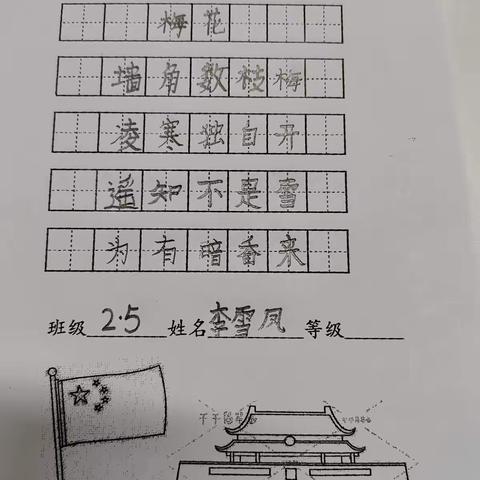 梅花
墙角数枝梅
凌寒独自开
遥知不是雪
为有暗香来
班级 2.5 姓名 李雪凤 等级